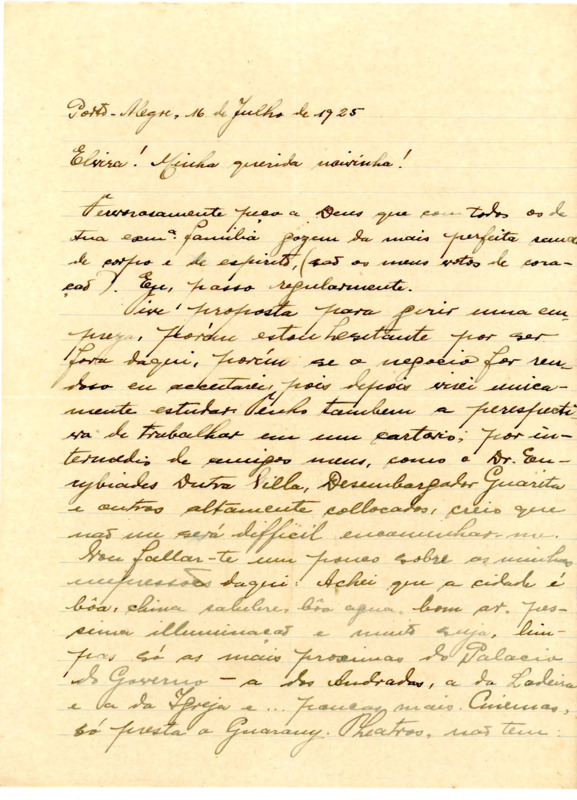 Porto-Alegre, 16 de Julho de 1925
Elvira! Minha querida noivinha!
Fervorosamente peço a Deus que com todos os de
tua exmª. familia gozem da mais perfeita saude
de corpo e de espirito, (são os meus votos de cora-
ção). Eu, passo regularmente.
Tive proposta para gerir uma em-
preza, porém estou hesitante por ser
fora daqui, porém se o negocio for ren-
doso eu acceitarei, pois depois virei unica-
mente estudar. Tenho tambem a perespecti-
va de trabalhar em um cartorio; por in-
termedio de amigos meus, como o Dr. Eu-
rybiades Dutra Villa, Desembargador Guarita
e outros altamente collocados, creio que
não me será difficil encaminhar-me.
Vou fallar-te um pouco sobre as minhas
impressões daqui: Achei que a cidade é
bôa, clima salubre, bôa agua, bom ar, pes-
sima illuminação e muito suja, lim-
pas só as mais proximas do Palacio
do Governo - a dos Andradas, a da Ladeira
e a da Igreja e ... poucas mais. Cinemas,
só presta o Guarany. Theatros, não tem.